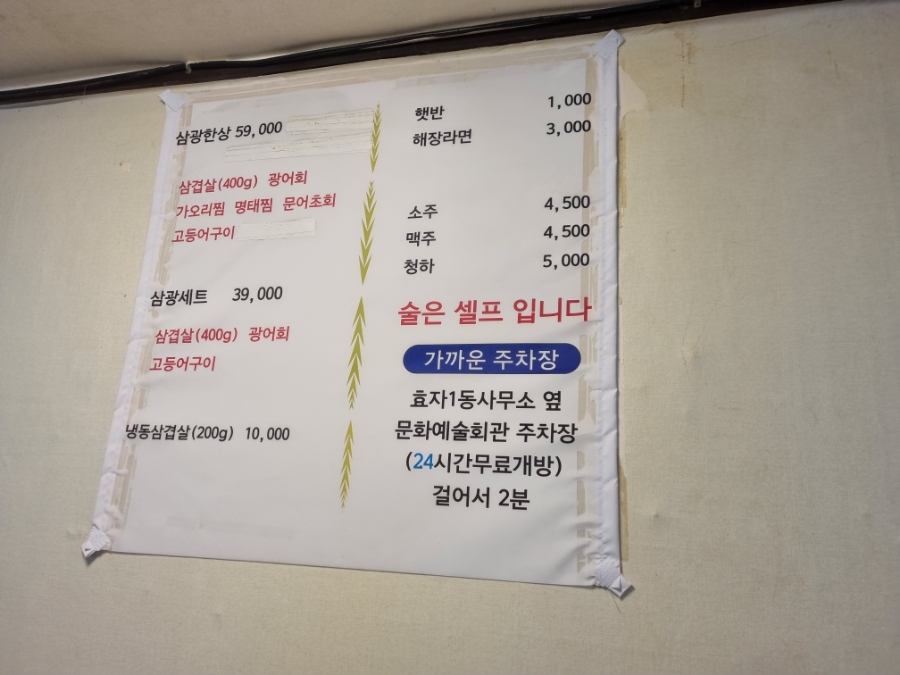 삼광한상 59,000
삼겹살(400g) 광어회
가오리찜 명태찜 문어초회
고등어구이
삼광세트 39,000
삼겹살(400g) 광어회
고등어구이
냉동삼겹살(200g) 10,000
햇반 1,000
해장라면 3,000
소주 4,500
맥주 4,500
청하 5,000
술은 셀프 입니다
가까운 주차장
효자1동사무소 옆
문화예술회관 주차장
(24시간무료개방)
걸어서 2분